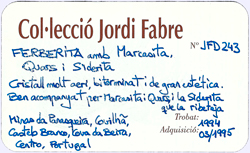 Col·lecció Jordi Fabre
FERBERITA amb Marcasita, Nº JFD243
Quars i Siderita
Cristall molt aeri, biterminat i de gran estètica.
Ben acompanyat per Marcasita i Quars i la Siderita
que la ribeteja
Minas da Panasqueira, Covilhã, Trobat: 1994
Castelo Branco, Cova da Beira, Adquisició: 03/1995
Centro, Portugal